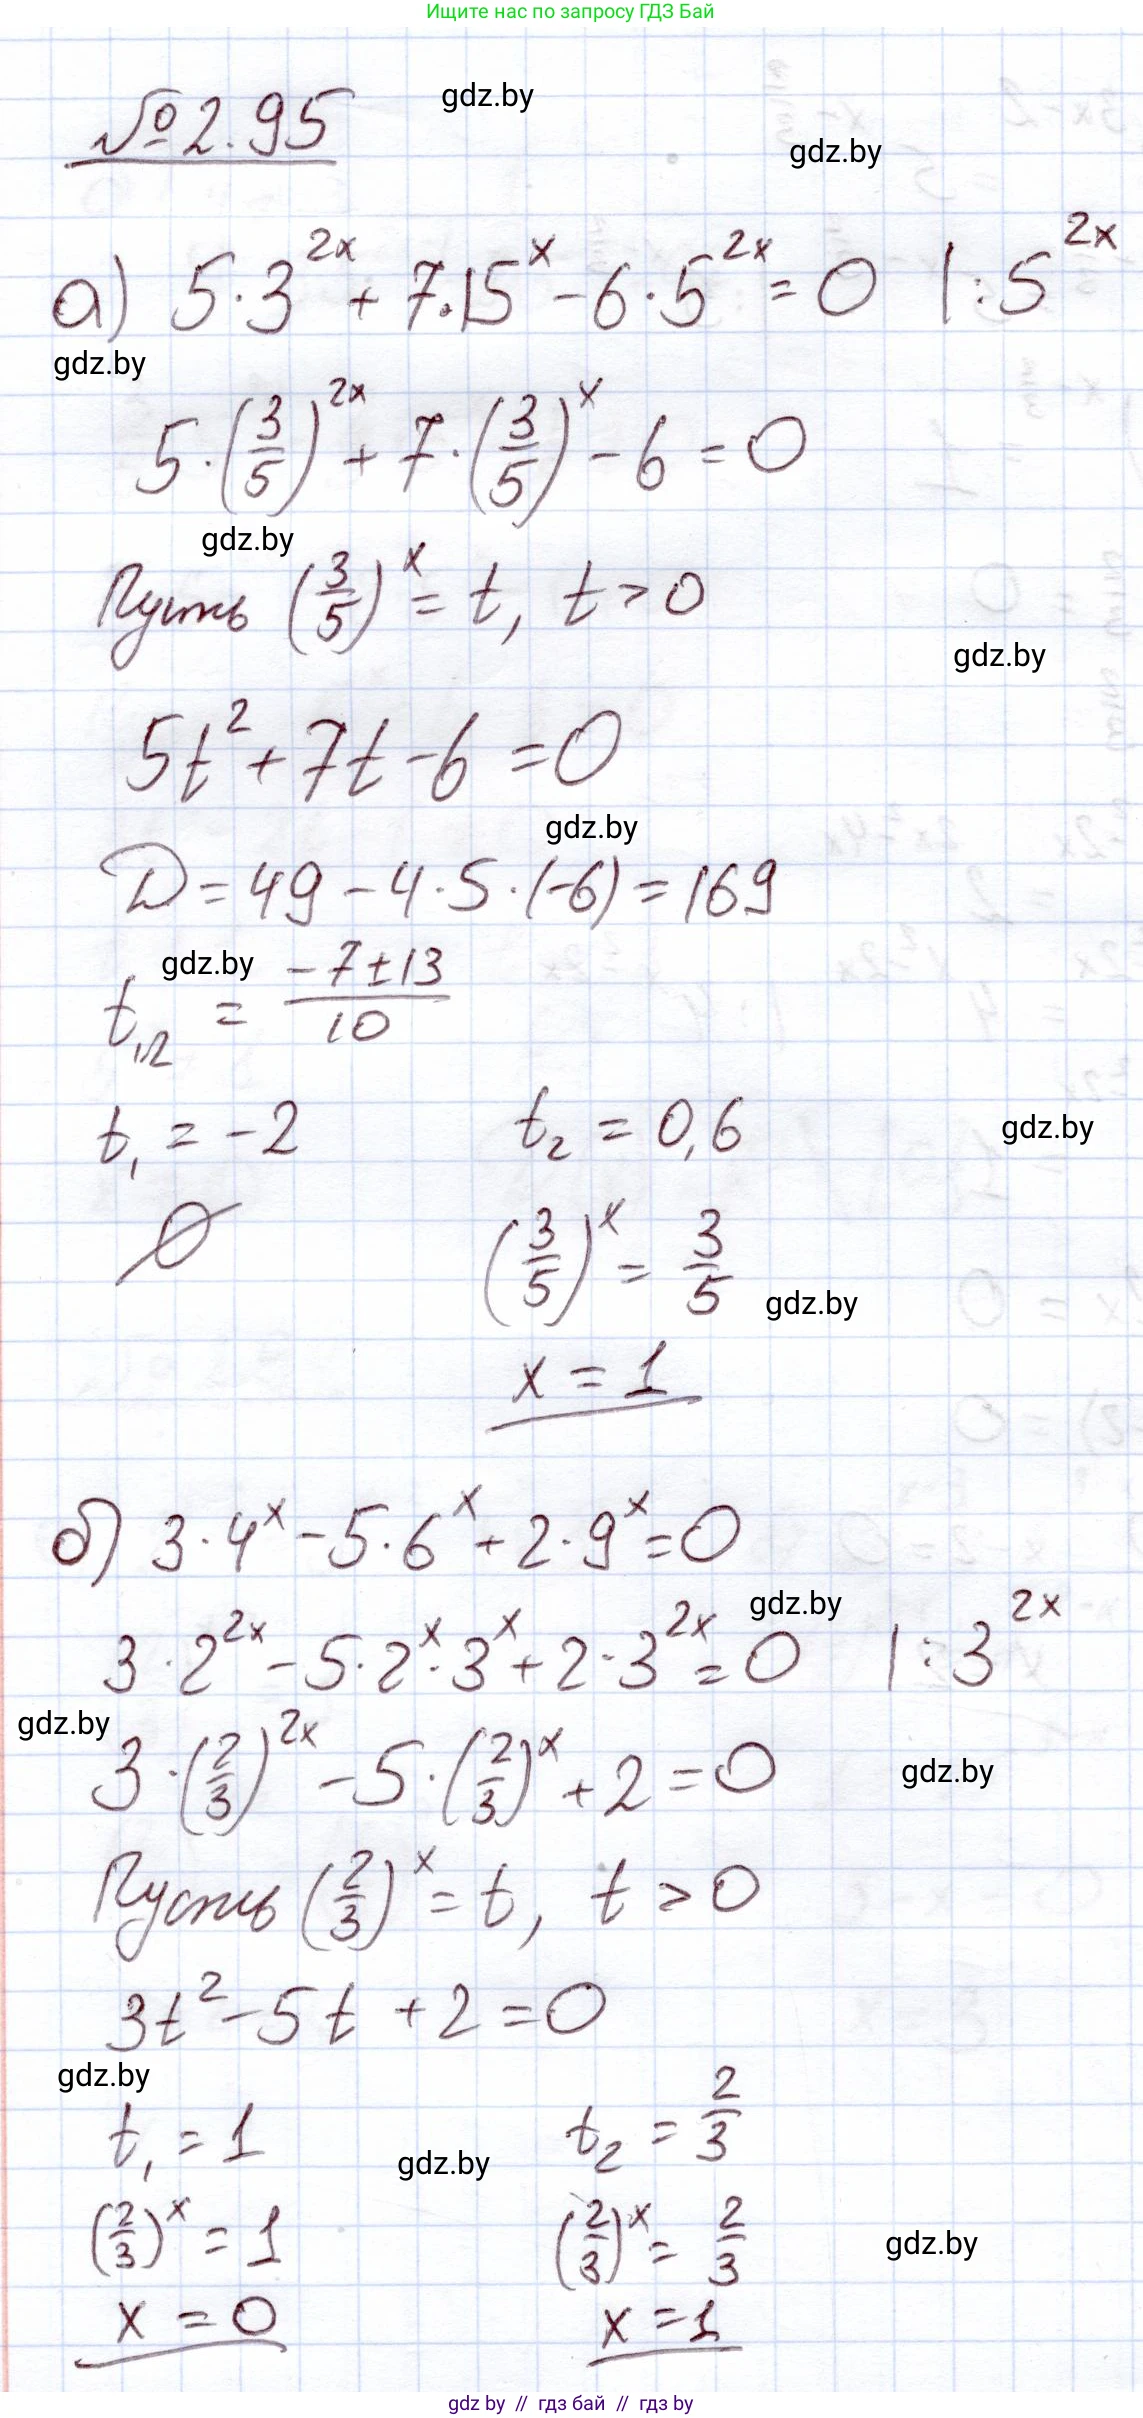 Ищите нас по запросу ГДЗ Бай
№2.95
gdz.by
gdz.by
а) 5·3^(2x) + 7·15^x − 6·5^(2x) = 0 | : 5^(2x)
gdz.by
5·(3/5)^(2x) + 7·(3/5)^x − 6 = 0
gdz.by
Пусть (3/5)^x = t, t > 0
gdz.by
5t² + 7t − 6 = 0
gdz.by
D = 49 − 4·5·(−6) = 169
gdz.by
t₁,₂ = (−7 ± 13)/10
t₁ = −2 t₂ = 0,6
gdz.by
∅ (3/5)^x = 3/5
gdz.by
x = 1
б) 3·4^x − 5·6^x + 2·9^x = 0
gdz.by
3·2^(2x) − 5·2^x·3^x + 2·3^(2x) = 0 | : 3^(2x)
gdz.by
3·(2/3)^(2x) − 5·(2/3)^x + 2 = 0
gdz.by
Пусть (2/3)^x = t, t > 0
3t² − 5t + 2 = 0
gdz.by
t₁ = 1 t₂ = 2/3
gdz.by
(2/3)^x = 1 (2/3)^x = 2/3
gdz.by
x = 0 x = 1
gdz by // гдз бай // гдз by